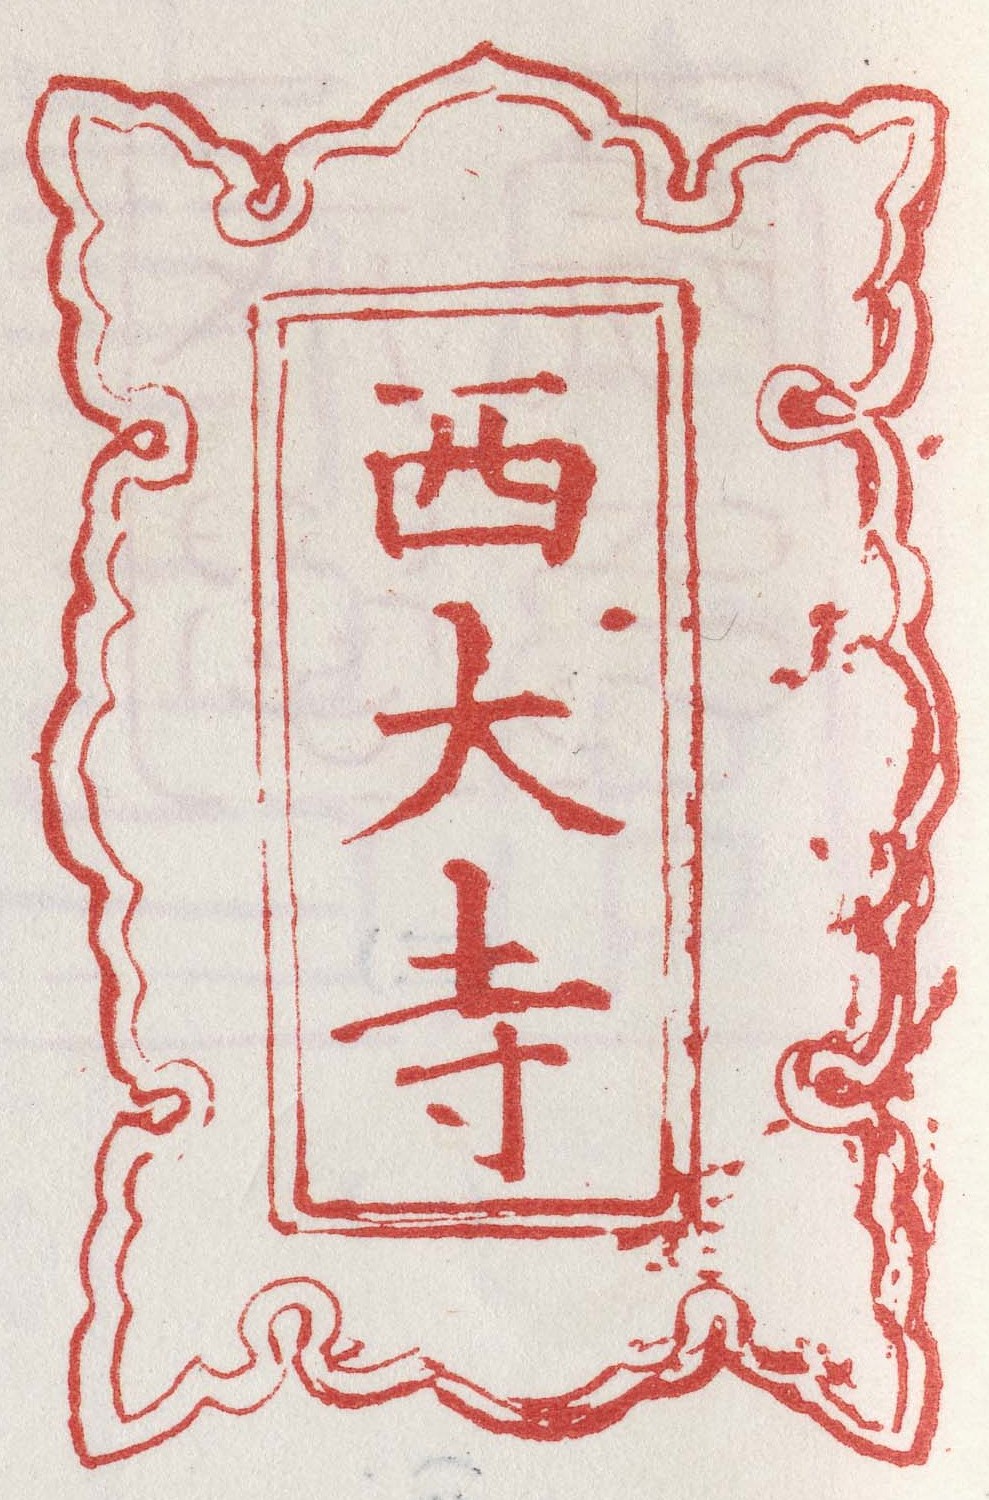 西大寺